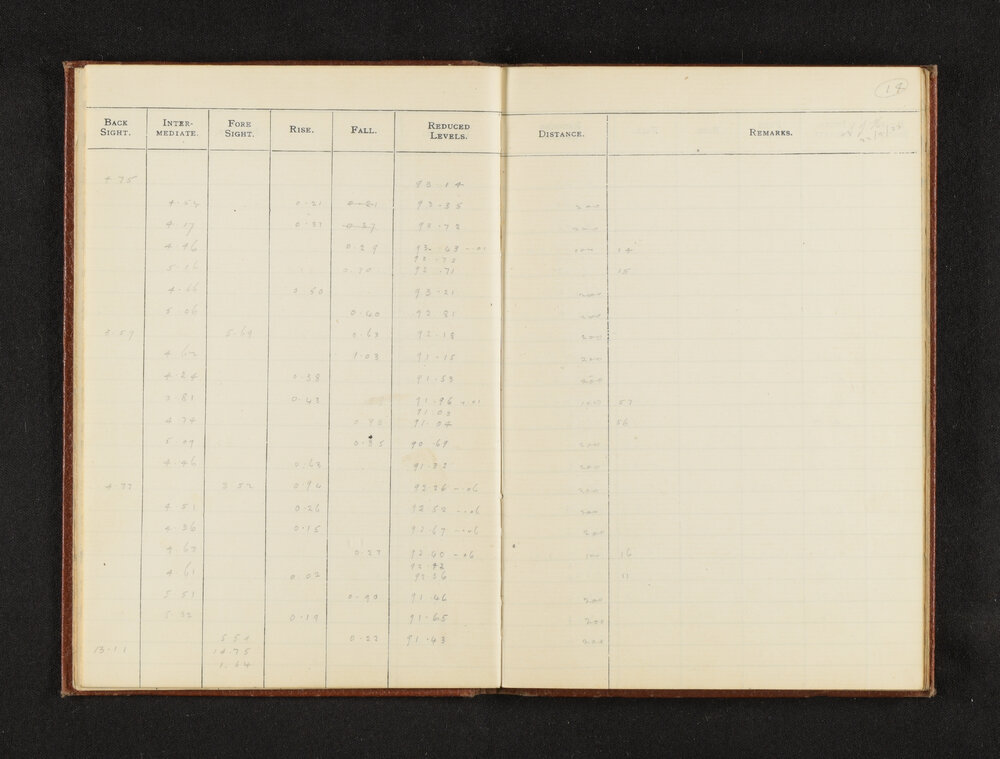 18
BACK SIGHT. INTER-MEDIATE. FORE SIGHT. RISE. FALL. REDUCED LEVELS. DISTANCE. REMARKS.
4.75 93.14
4.54 0.21 0.21 93.35 200
4.17 0.37 0.37 93.72 200
4.46 0.29 93.43 -.01 100 14
92.72
5.16 92.71 15
4.66 0.50 93.21 200
5.06 0.40 92.81 200
3.59 5.69 0.63 92.18 200
4.62 1.03 91.15 200
4.24 0.38 91.53 200
3.81 0.43 91.96 57
91.03
4.74 91.04 56
5.09 0.35 90.69 200
4.46 0.63 91.32 200
4.77 3.52 0.94 92.26 -.06 200
4.51 0.26 92.52 -.06 200
4.36 0.15 92.67 -.06 200
4.63 0.27 92.40 -.06 100 16
92.42
4.61 0.02 92.36
5.51 0.90 91.46 200
5.32 0.19 91.65 200
5.54 0.22 91.43 200
13.11 14.75
1.64